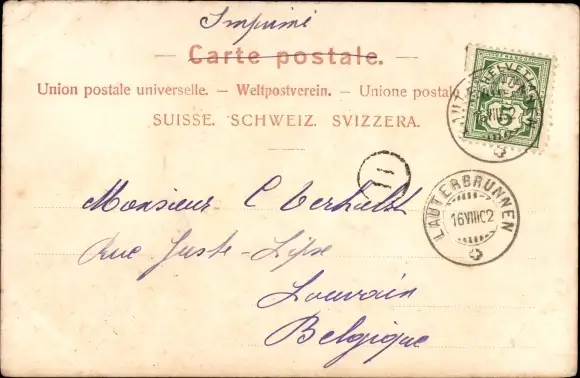 Imprimé
— Carte postale. —
Union postale universelle. — Weltpostverein. — Unione postale
SUISSE. SCHWEIZ. SVIZZERA.
HELVETIA
5
11
LAUTERBRUNNEN
16 VIII 02
Monsieur C Verhulst
Rue Juste-Lipse
Louvain
Belgique